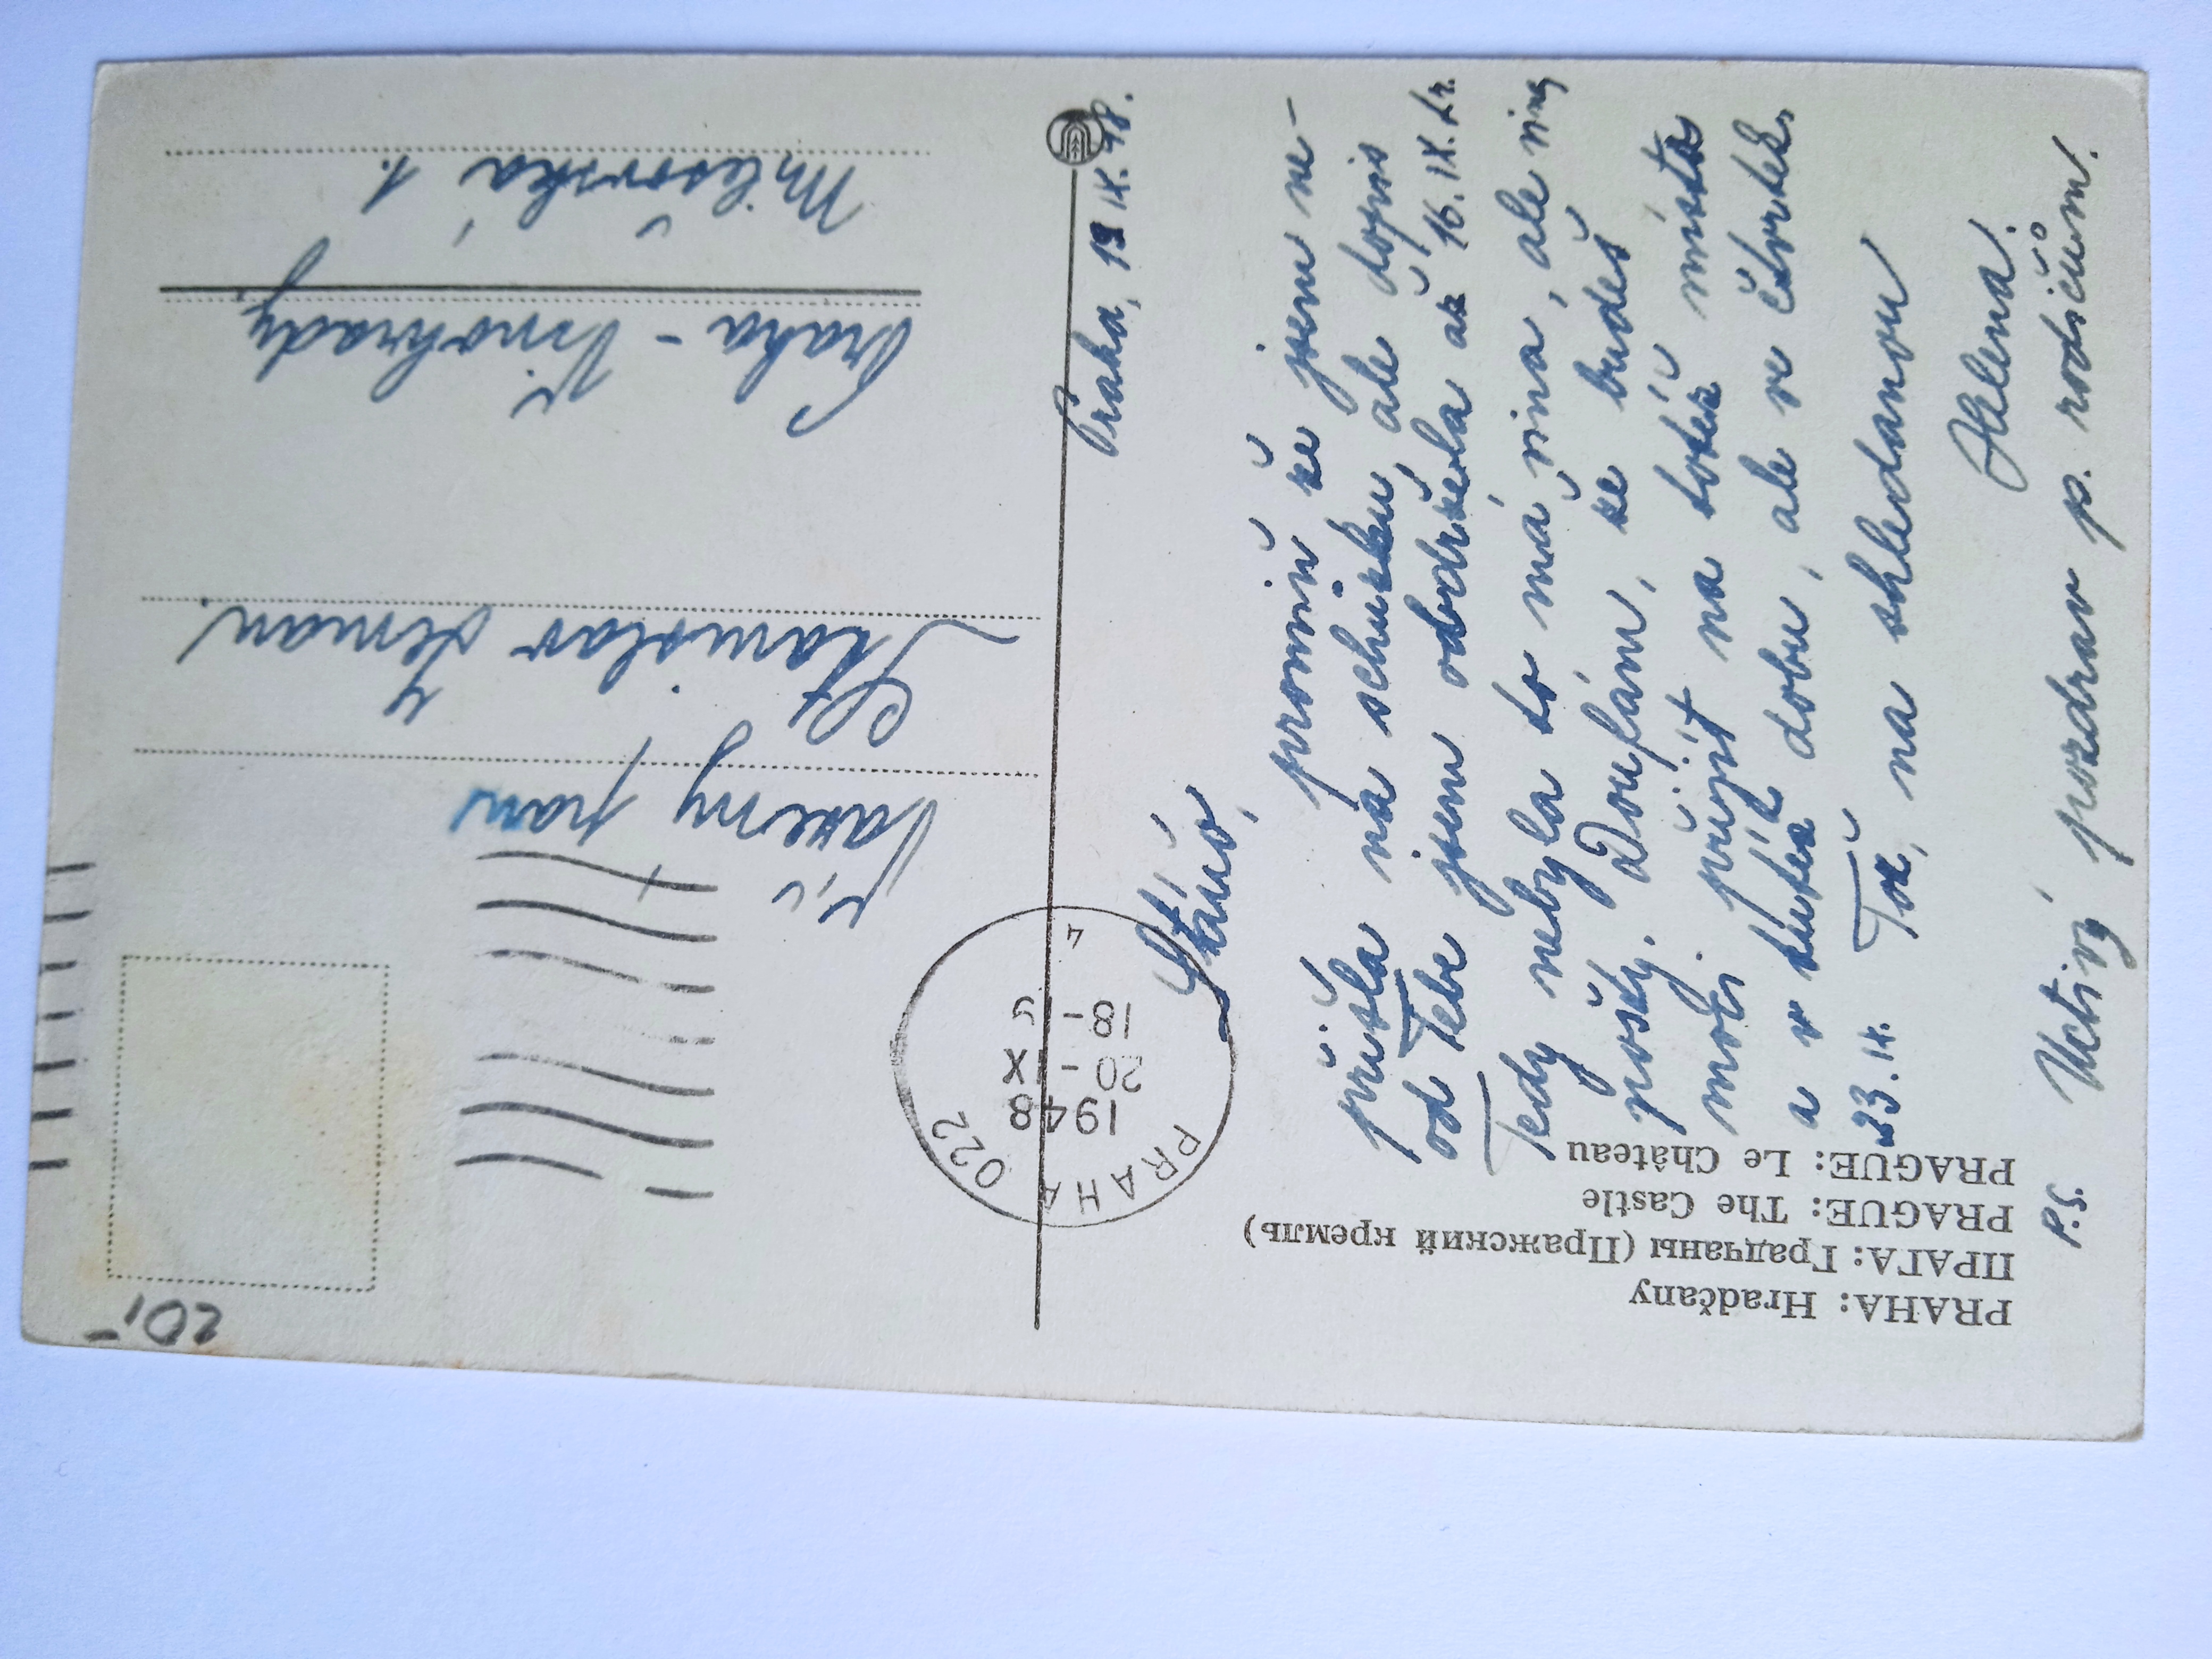 PRAHA: Hradčany
ПРАГА: Градчаны (Пражский кремль)
PRAGUE: The Castle
PRAGUE: Le Château
Praha, 19 IX. 48.
Stáňo,
promiň že jsem ne-
přišla na schůzku, ale dopis
od Tebe jsem obdržela až 16. IX. t.r.
Tedy nebyla to má vina, ale viny
pošty. Doufám, že budeš
moci přijít na totéž místo
a v tutéž dobu, ale ve čtvrtek
23. IX. Tož, na shledanou
Helena.
P.S. Uctivý pozdrav p. rodičům.
PRAHA 022
1948
20 - IX
18 - 5
4
Vážený pan
Stanislav Zeman
Praha - Vinohrady
Milešovská 1.
20,-